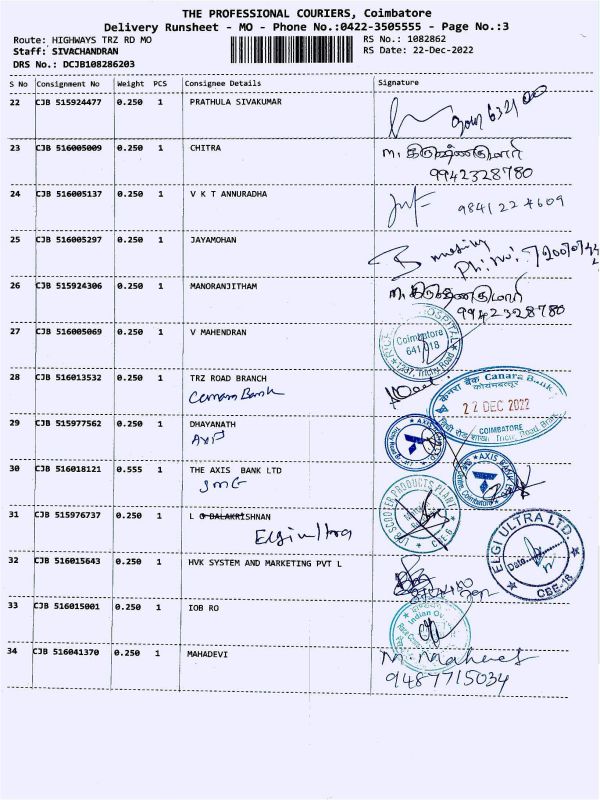 THE PROFESSIONAL COURIERS, Coimbatore
Delivery Runsheet - MO - Phone No.:0422-3505555 - Page No.:3
Route: HIGHWAYS TRZ RD MO
RS No.: 1082862
Staff: SIVACHANDRAN
RS Date: 22-Dec-2022
DRS No.: DCJB108286203
S No Consignment No Weight PCS Consignee Details Signature
22 CJB 515924477 0.250 1 PRATHULA SIVAKUMAR
23 CJB 516005009 0.250 1 CHITRA m. கிருஷ்ணகுமார்
9942328780
24 CJB 516005137 0.250 1 V K T ANNURADHA 9841224609
25 CJB 516005297 0.250 1 JAYAMOHAN
26 CJB 515924306 0.250 1 MANORANJITHAM m. கிருஷ்ணகுமார்
9942328780
27 CJB 516005069 0.250 1 V MAHENDRAN
HOSPITAL
Coimbatore
641 018
Trichy Road
28 CJB 516013532 0.250 1 TRZ ROAD BRANCH
Canara Bank
केनरा बैंक Canara Bank
कोयम्बत्तूर
22 DEC 2022
COIMBATORE
29 CJB 515977562 0.250 1 DHAYANATH
Axis
AXIS
30 CJB 516018121 0.555 1 THE AXIS BANK LTD
AXIS BANK
SCOOTER PRODUCTS PLANT
31 CJB 515976737 0.250 1 L G BALAKRISHNAN
Elgi ultra
ELGI ULTRA LTD.
Date
CBE-18
32 CJB 516015643 0.250 1 HVK SYSTEM AND MARKETING PVT L
33 CJB 516015001 0.250 1 IOB RO
Indian
34 CJB 516041370 0.250 1 MAHADEVI
9487715034